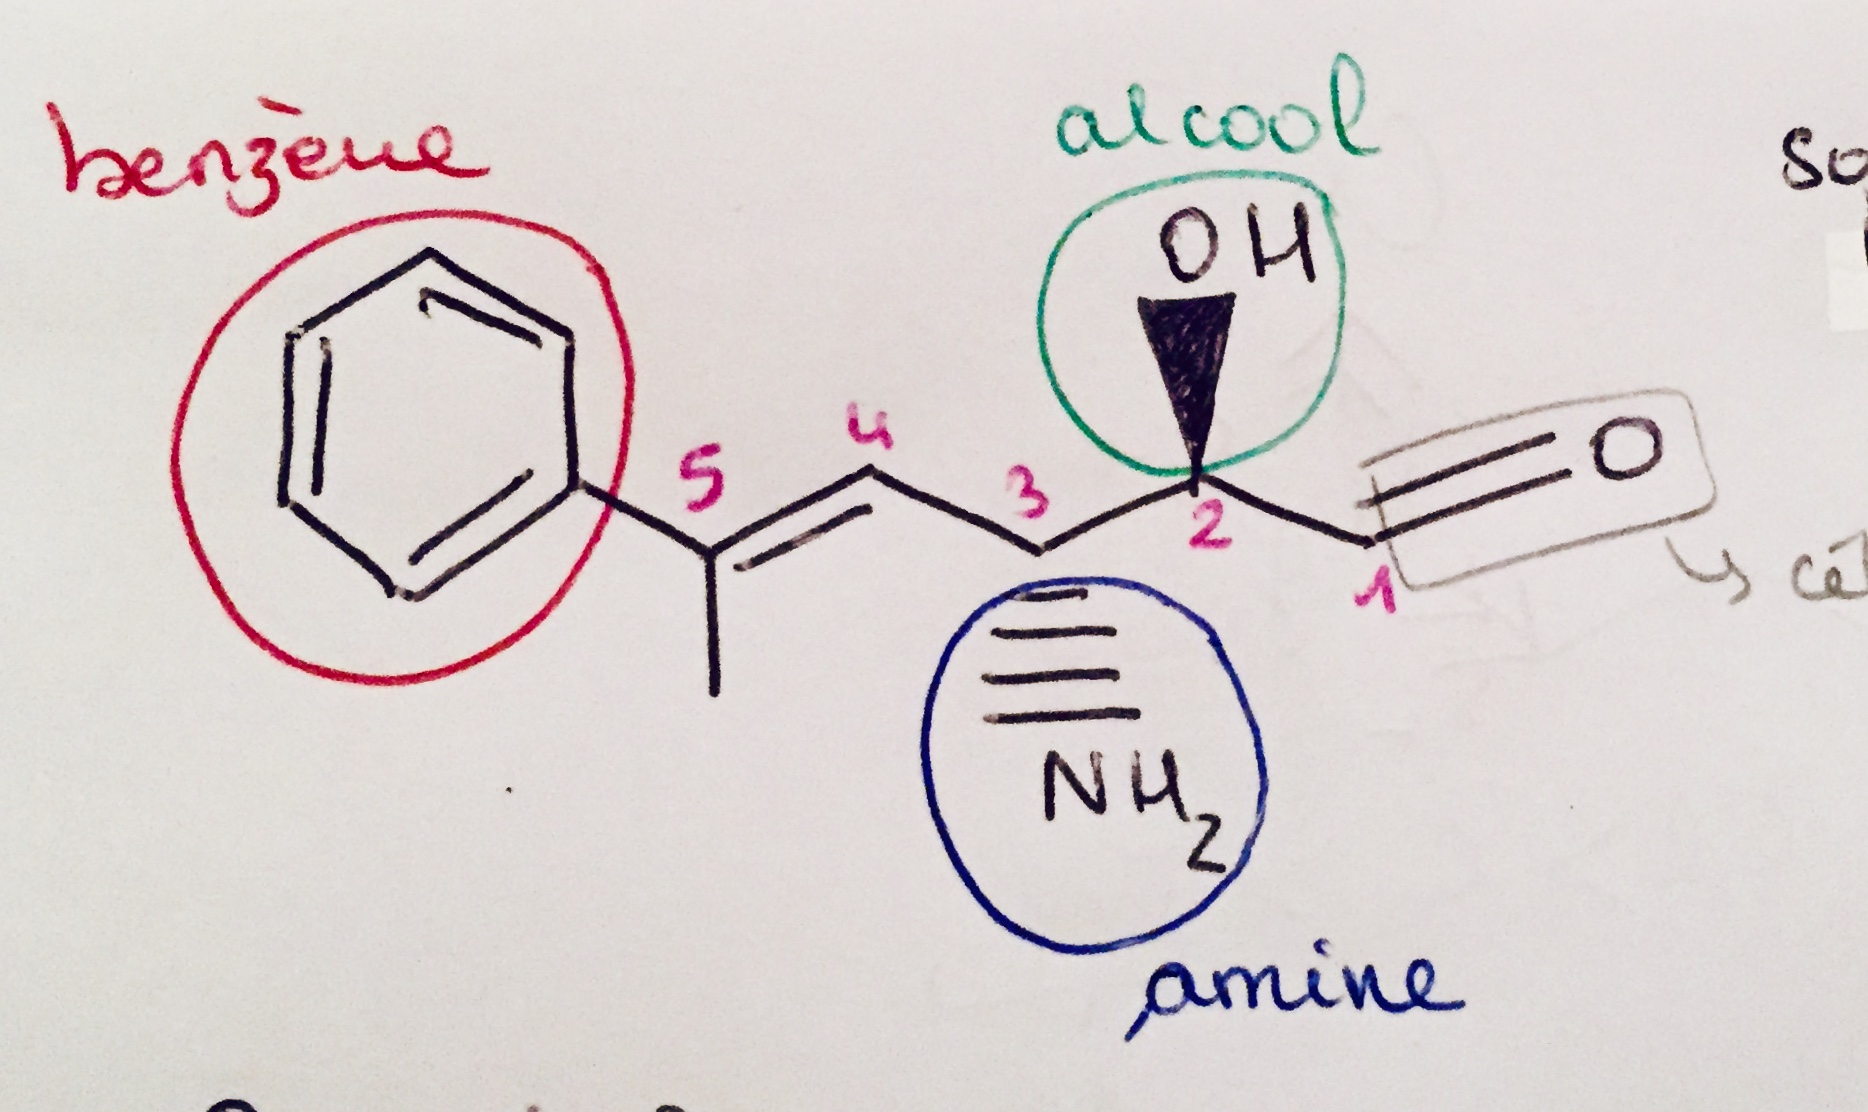 benzène
alcool
OH
O
5
4
3
2
1
NH2
amine